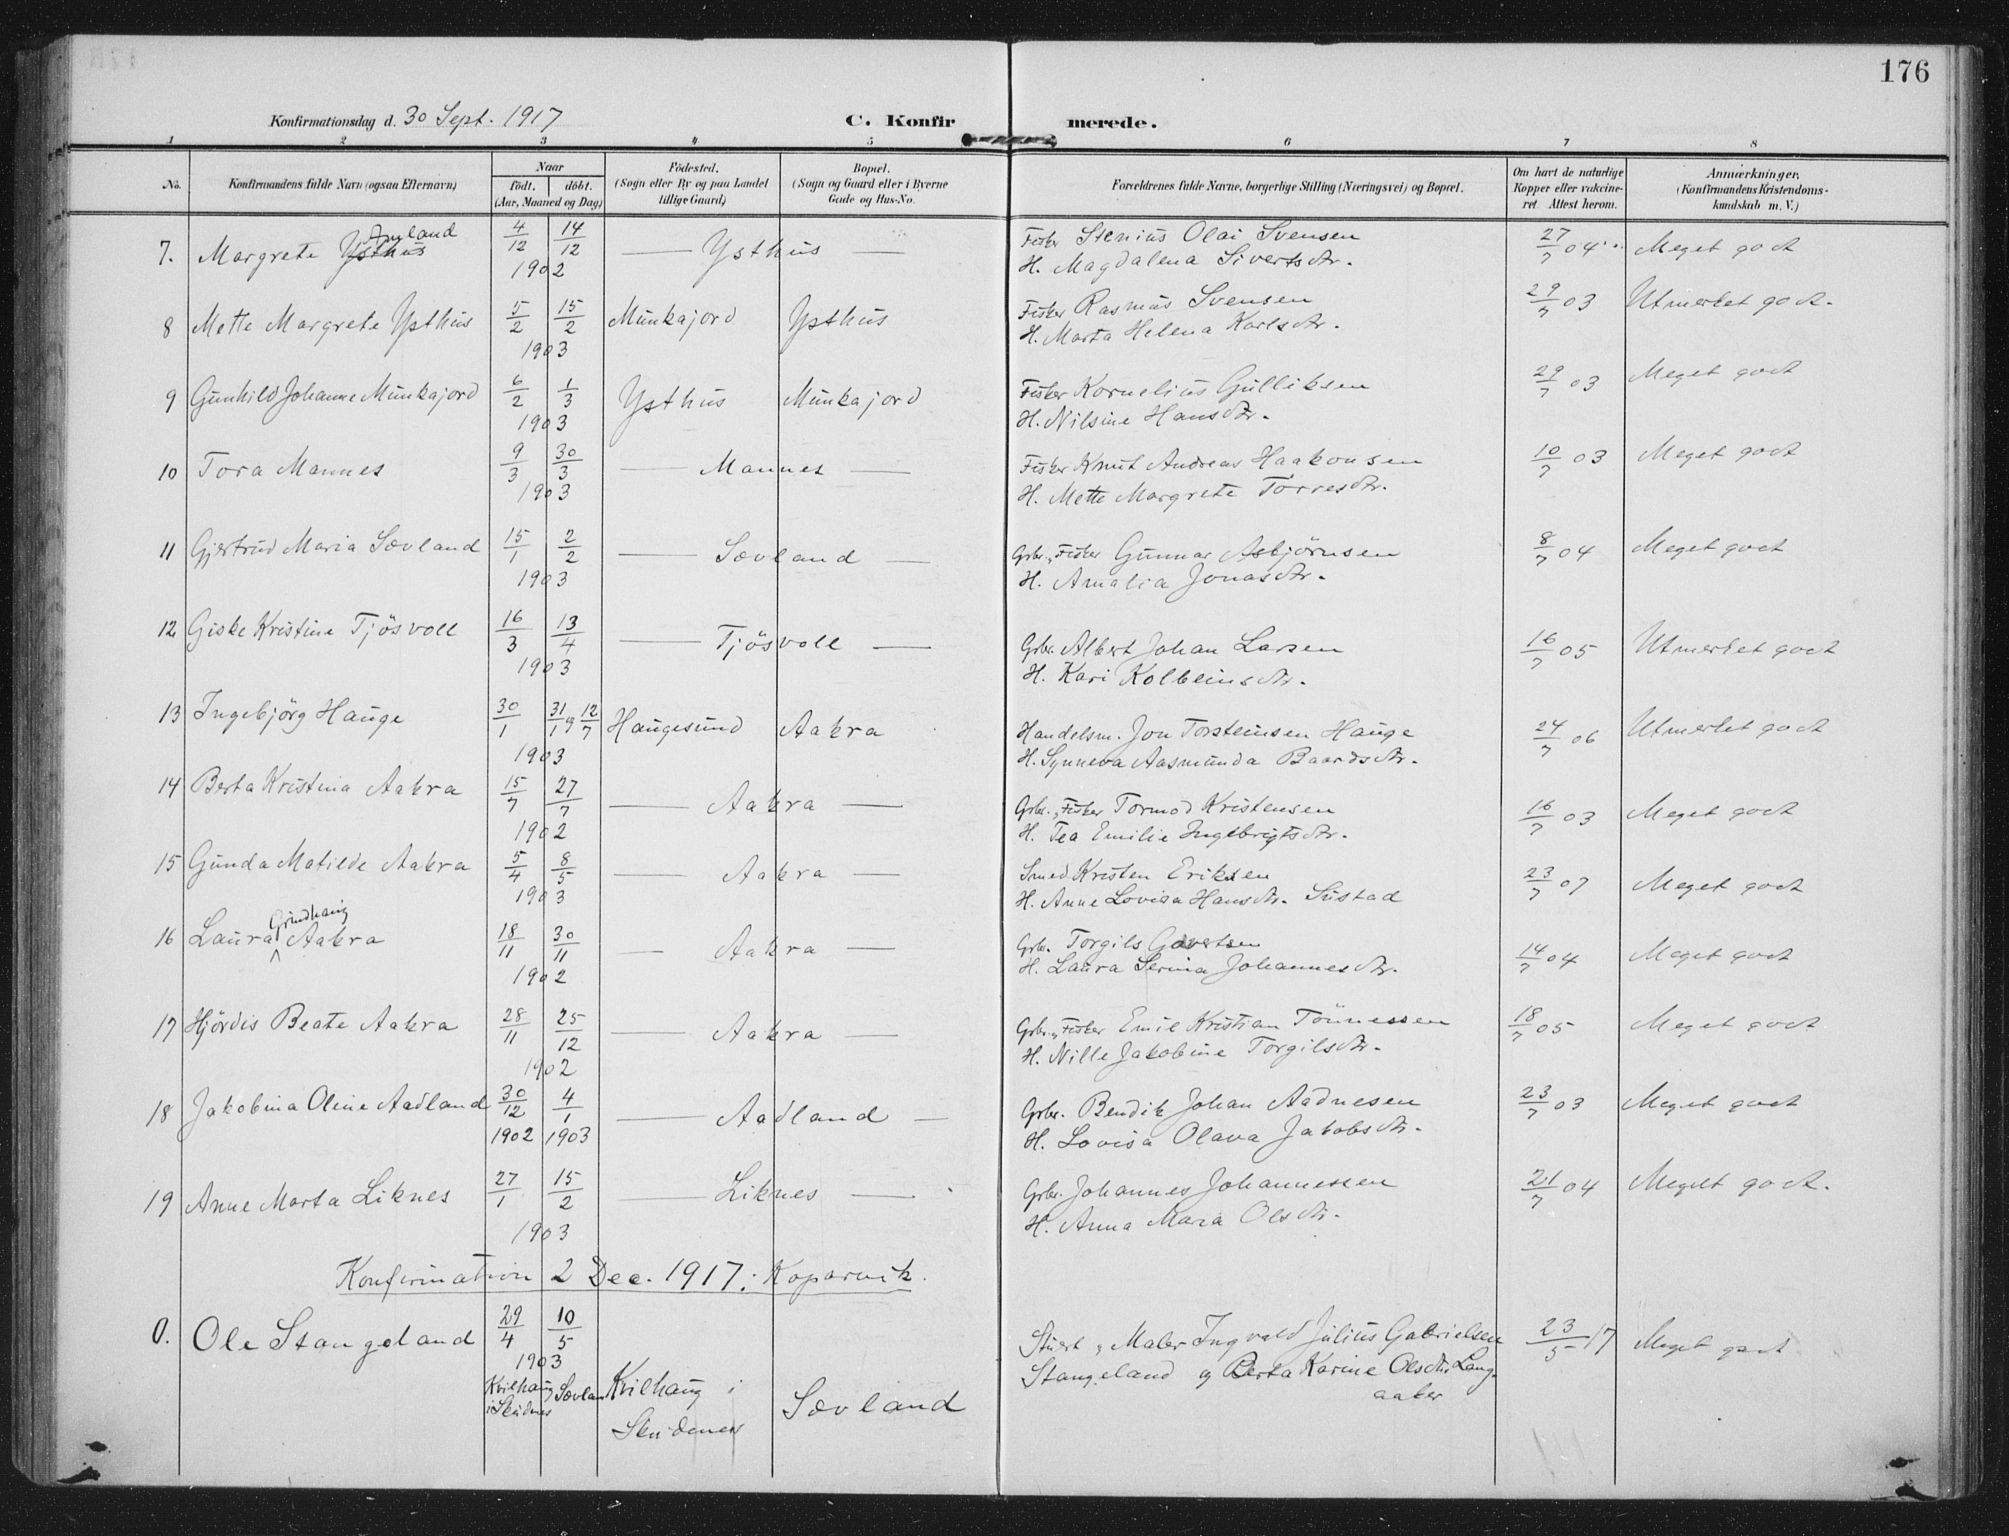 176
Konfirmationsdag d. 30 Sept. 1917 C. Konfirmerede.
1 2 3 4 5 6 7 8
No. Konfirmandens fulde Navn (ogsaa Efternavn) Naar født. døbt. (Aar, Maaned og Dag) Fødested. (Sogn eller By og paa Landet tillige Gaard) Bopæl. (Sogn og Gaard eller i Byerne Gade og Hus-No. Forældrenes fulde Navne, borgerlige Stilling (Næringsvei) og Bopæl. Om havt de naturlige Kopper eller vakcineret Attest herom. Anmærkninger. (Konfirmandens Kristendomskundskab m. V.)
7. Margrete Ysthus 4/12 14/12 — Ysthus — Fisker Stenius Olai Svensen 27/7 04 Meget godt
1902 H. Magdalena Sivertsdtr.
8 Mette Margrete Ysthus 5/2 15/2 Munkajord Ysthus Fisker Rasmus Svensen 29/7 03 Utmerket godt.
1903 H. Marta Helena Karlsdtr.
9 Gunhild Johanne Munkajord 6/2 1/3 Ysthus Munkajord Fisker Kornelius Gulliksen 29/7 03 Meget godt
1903 H. Nilsine Hansdtr.
10 Tora Mannes 9/3 30/3 — Mannes — Fisker Knut Andreas Haakonsen 10/7 03 Meget godt
1903 H. Mette Margrete Torresdtr.
11 Gjertrud Maria Sævland 15/1 2/2 — Sævland — Grbr. og Fisker Gunnar Asbjørnsen 8/7 04 Meget godt
1903 H. Amalia Jonasdtr.
12 Giske Kristine Tjösvoll 16/3 13/4 — Tjösvoll — Grbr. Albert Johan Larsen 16/7 05 Utmerket godt
1903 H. Kari Kolbeinsdtr.
13 Ingebjörg Hauge 30/1 31/1 og 12/7 Haugesund Aakra Handelsm. Jon Torsteinsen Hauge 24/7 06 Utmerket godt
1903 H. Synneva Aasmunda Baardsdtr.
14 Berta Kristina Aakra 15/7 27/7 — Aakra — Grbr. og Fisker Tormod Kristensen 16/7 03 Meget godt
1902 H. Tea Emilie Ingebrigtsdtr.
15 Gunda Matilde Aakra 5/4 8/5 — Aakra — Smed Kristen Eriksen 23/7 07 Meget godt
1903 H. Anne Lovisa Hansdtr. Sustad
Grindhaug
16 Laura Aakra 18/11 30/11 — Aakra — Grbr. Torgils Govertsen 14/7 04 Meget godt
1902 H. Laura Serina Johannesdtr.
17 Hjördis Beate Aakra 28/11 25/12 — Aakra — Grbr. og Fisker Emil Kristian Tönnessen 18/7 05 Meget godt
1902 H. Nille Jakobine Torgilsdtr.
18 Jakobina Oline Aadland 30/12 4/1 — Aadland — Grbr. Bendik Johan Aadnesen 23/7 03 Meget godt
1902 1903 H. Lovisa Olava Jakobsdtr.
19 Anne Marta Liknes 27/1 15/2 — Liknes — Grbr. Johannes Johannessen 21/7 04 Meget godt.
1903 H. Anna Maria Olsdtr.
Konfirmation 2 Dec. 1917 i Kopervik.
0. Ole Stangeland 29/4 10/5 Stuert og Maler Ingvald Julius Gabrielsen 23/5 17 Meget godt
1903 Stangeland og Berta Karine Olsdtr. Lang-
aaker
Kvilhaug i Skudenes Sævland Kvilhaug i Skudenes Sævland